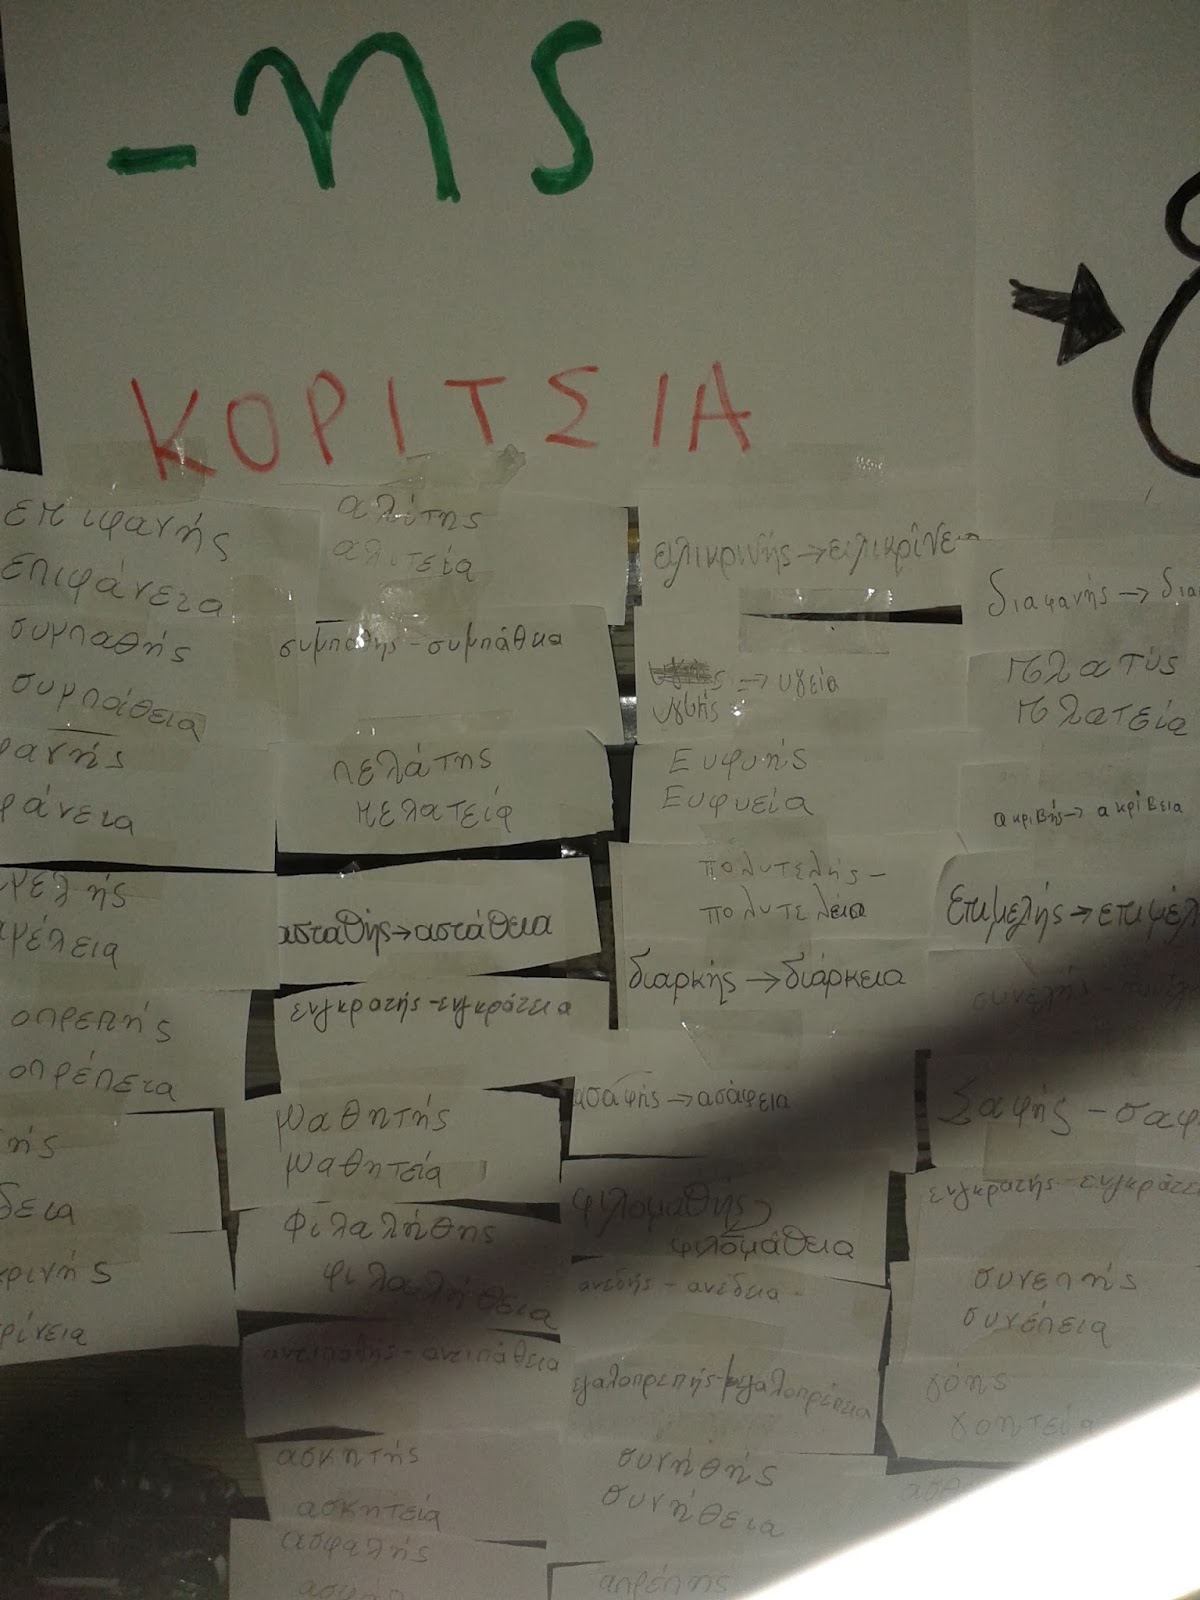 -ης
ΚΟΡΙΤΣΙΑ
επιφανής
επιφάνεια
συμπαθής
συμπάθεια
φανής
φάνεια
μελής
μέλεια
οπρεπής
οπρέπεια
ής
δεια
κρινής
ρίνεια
αλήτης
αλητεία
συμπαθής - συμπάθεια
πελάτης
πελατεία
ασταθής → αστάθεια
ενγκρατής - ενγκράτεια
μαθητής
μαθητεία
Φιλαλήθης
φιλαλήθεια
αντιπαθής - αντιπάθεια
ασκητής
ασκητεία
ασφαλής
ειλικρινής → ειλικρίνεια
→ υγεία
υγιής
Ευφυής
Ευφυεία
πολυτελής -
πολυτέλεια
διαρκής → διάρκεια
ασαφής → ασάφεια
φιλομαθής
φιλομάθεια
ανεδής - ανέδεια
εγαλοπρεπής - μεγαλοπρέπεια
συνήθης
συνήθεια
απρέπης
διαφανής → δια
πλατύς
πλατεία
ακριβής → ακρίβεια
Επιμελής → επιμέλ
Σαφής - σαφ
ενγκρατής - ενγκράτε
συνεπής
συνέπεια
γόης
γοητεία
ασθ